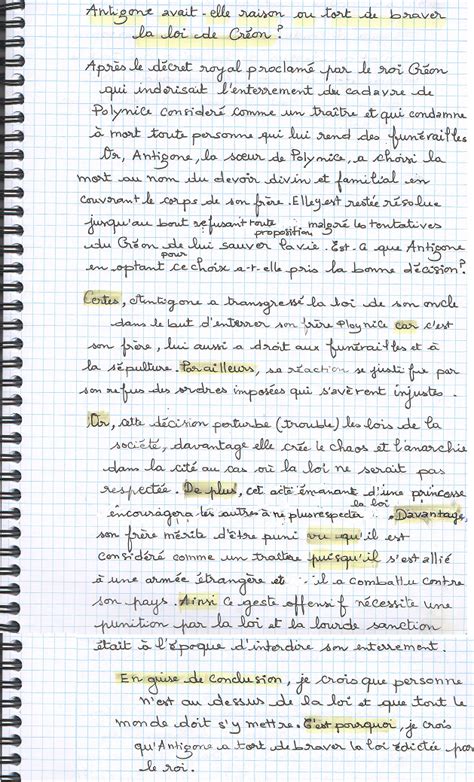 Antigone avait-elle raison ou tort de braver
la loi de Créon ?
Après le décret royal proclamé par le roi Créon
qui indérisait l'enterrement du cadavre de
Polynice considéré comme un traître et qui condamne
à mort toute personne qui lui rend des funérailles
Or, Antigone, la sœur de Polynice, a choisi la
mort au nom du devoir divin et familial en
couvrant le corps de son frère. Elle y est restée résolue
jusqu'au bout refusant toute proposition malgré les tentatives
du Créon de lui sauver la vie. Est-ce que Antigone
en optant pour ce choix a-t-elle pris la bonne décision ?
Certes, Antigone a transgressé la loi de son oncle
dans le but d'enterrer son frère Ploynice car c'est
son frère, lui aussi a droit aux funérailles et à
la sépulture. Par ailleurs, sa réaction se justifie par
son refus des ordres imposées qui s'avèrent injustes.
Or, cette décision perturbe (trouble) les lois de la
société, davantage elle crée le chaos et l'anarchie
dans la cité au cas où la loi ne serait pas
respectée. De plus, cet acte émanant d'une princesse
encouragera les autres à ne plus respecter la loi. Davantage,
son frère mérite d'être puni vu qu'il est
considéré comme un traître puisqu'il s'est allié
à une armée étrangère et il a combattu contre
son pays. Ainsi ce geste offensif nécessite une
punition par la loi et la lourde sanction
était à l'époque d'interdire son enterrement.
En guise de conclusion, je crois que personne
n'est au dessus de la loi et que tout le
monde doit s'y mettre. C'est pourquoi, je crois
qu'Antigone a tort de braver la loi édictée par
le roi.